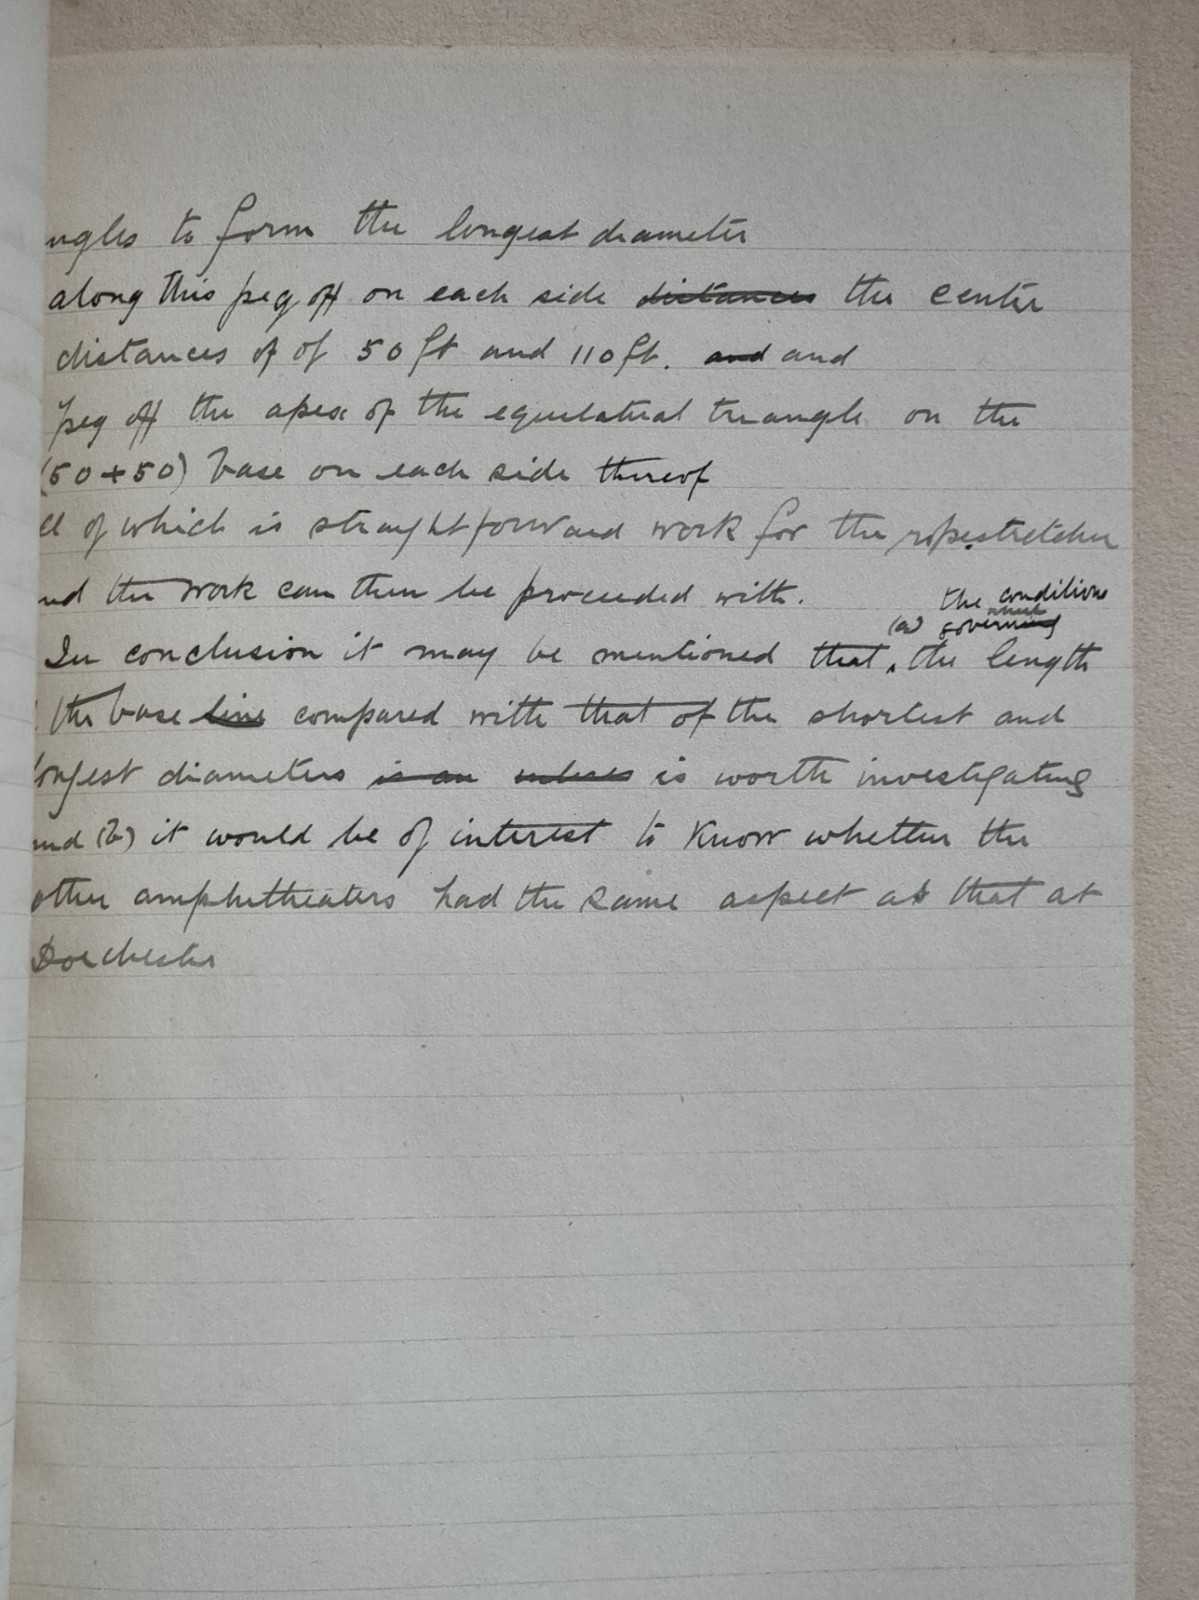 ngles to form the longest diameter
along this peg off on each side distances the center
distances of of 50 ft and 110 ft. and and
peg off the apex of the equilateral triangle on the
(50+50) base on each side thereof
ll of which is straightforward work for the ropestretcher
nd the work can then be proceeded with.
the conditions
(a) governing
In conclusion it may be mentioned that, the length
the base line compared with that of the shortest and
longest diameters is an is worth investigating
and (b) it would be of interest to know whether the
other amphitheaters had the same aspect as that at
Dorchester